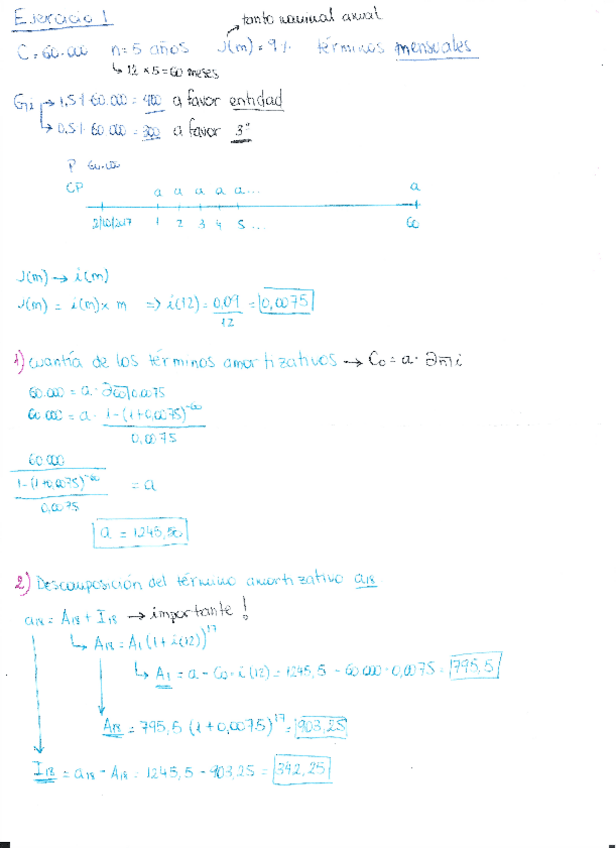 Ejercicio 1
tanto nominal anual
C = 60.000 n = 5 años J(m) = 9% términos mensuales
↳ 12 × 5 = 60 meses
Gi → 1,5% 60.000 = 900 a favor entidad
↳ 0,5% 60.000 = 300 a favor 3º
P 60.000
CP a a a a a... a
1 2 3 4 5 ... 60
J(m) → i(m)
J(m) = i(m) × m => i(12) = 0,09 / 12 = 0,0075
1) Cuantía de los términos amortizativos → C0 = a · an̅|i
60.000 = a · a60̅|0,0075
60 000 = a · 1-(1+0,0075)^-60 / 0,0075
60 000 / (1-(1+0,0075)^-60 / 0,0075) = a
a = 1245,50
2) Descomposición del término amortizativo a18
a18 = A18 + I18 → importante!
↳ A18 = A1 (1 + i(12))^17
↳ A1 = a - C0 · i(12) = 1245,5 - 60 000 · 0,0075 = 795,5
A18 = 795,5 (1 + 0,0075)^17 = 903,25
I18 = a18 - A18 = 1245,5 - 903,25 = 342,25